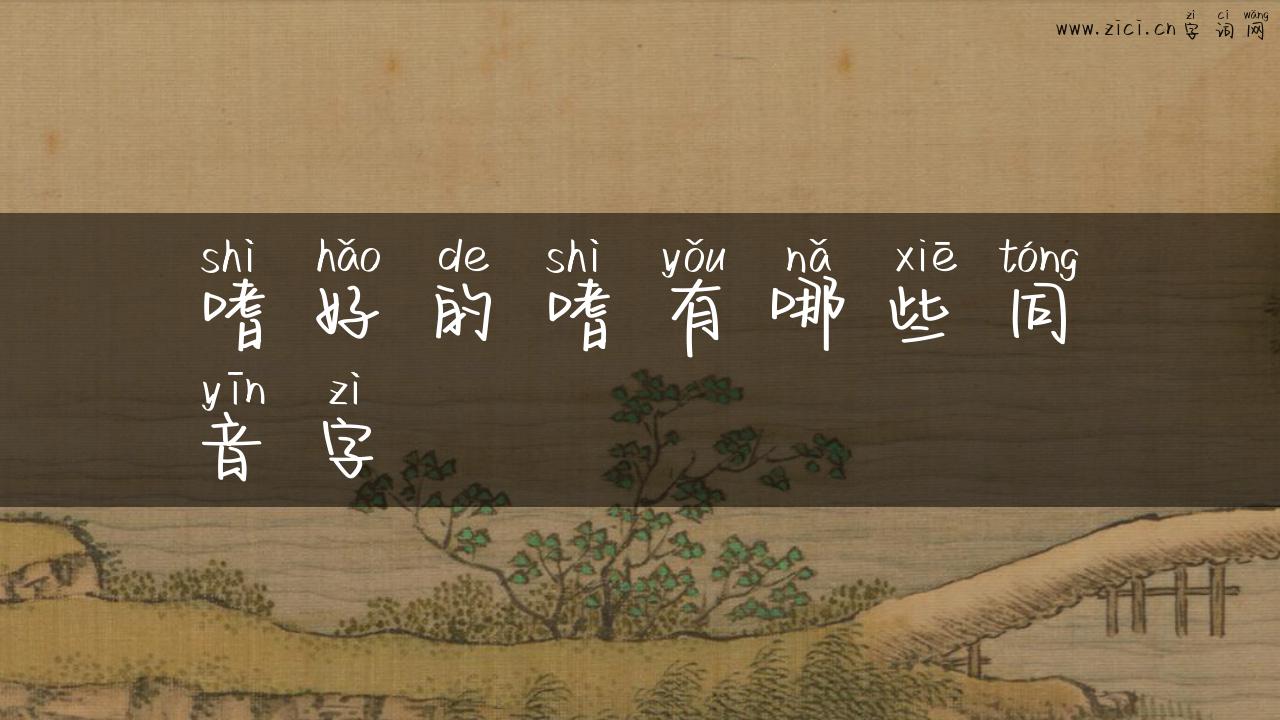 zì cí wǎng
www.zici.cn 字词网
shì hǎo de shì yǒu nǎ xiē tóng
嗜好的嗜有哪些同
yīn zì
音字